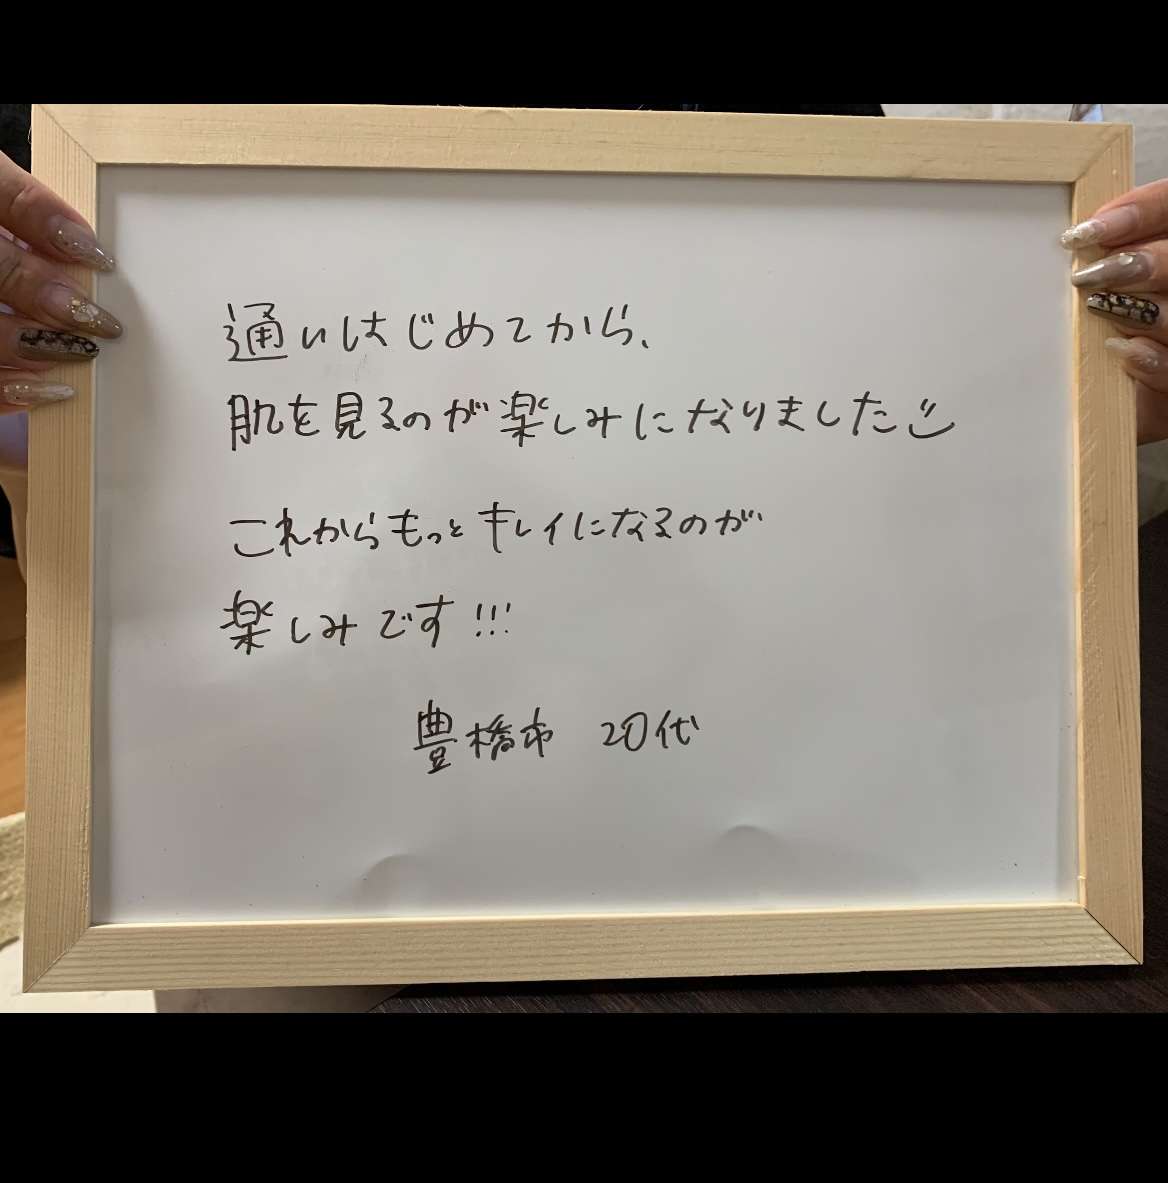 通いはじめてから、
肌を見るのが楽しみになりましたご
これからもっとキレイになるのが
楽しみです!!!
豊橋市 20代